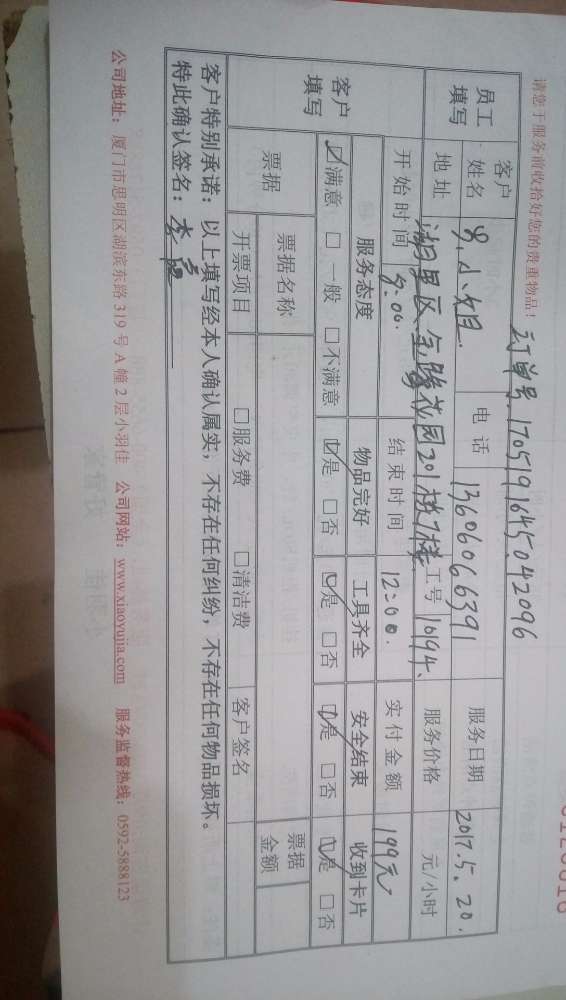 请您于服务前收拾好您的贵重物品！
订单号.170519164504 2096
员工填写
客户姓名
电话 13606066391
服务日期 2017.5.20.
地址 湖里区金骏花园201栋7楼
工号 10194.
服务价格 元/小时
开始时间 9:00.
结束时间 12:00.
实付金额 199元
客户填写
服务态度 物品完好 工具齐全 安全结束 收到卡片
☑满意 □一般 □不满意 ☑是 □否 ☑是 □否 ☑是 □否 ☑是 □否
票据 票据名称 票据金额
开票项目 □服务费 □清洁费 客户签名
客户特别承诺：以上填写经本人确认属实，不存在任何纠纷，不存在任何物品损坏。
特此确认签名：李
公司地址：厦门市思明区湖滨东路319号A幢2层小羽佳 公司网站：www.xiaoyujia.com 服务监督热线：0592-5888123